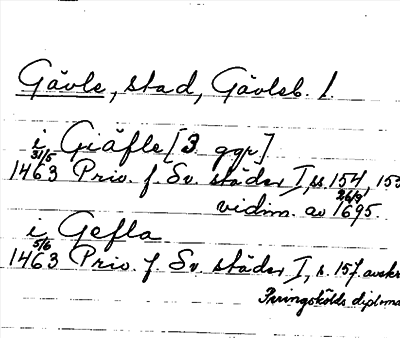 Gävle, stad, Gävleb. l.
i Giäfle [3 ggr]
31/5
1463 Priv. f. Sv. städer I, ss. 154, 153
26/9
vidim. av 1695.
i Gefla
5/6
1463 Priv. f. Sv. städer I, s. 157. avskr
Peringskölds diploma